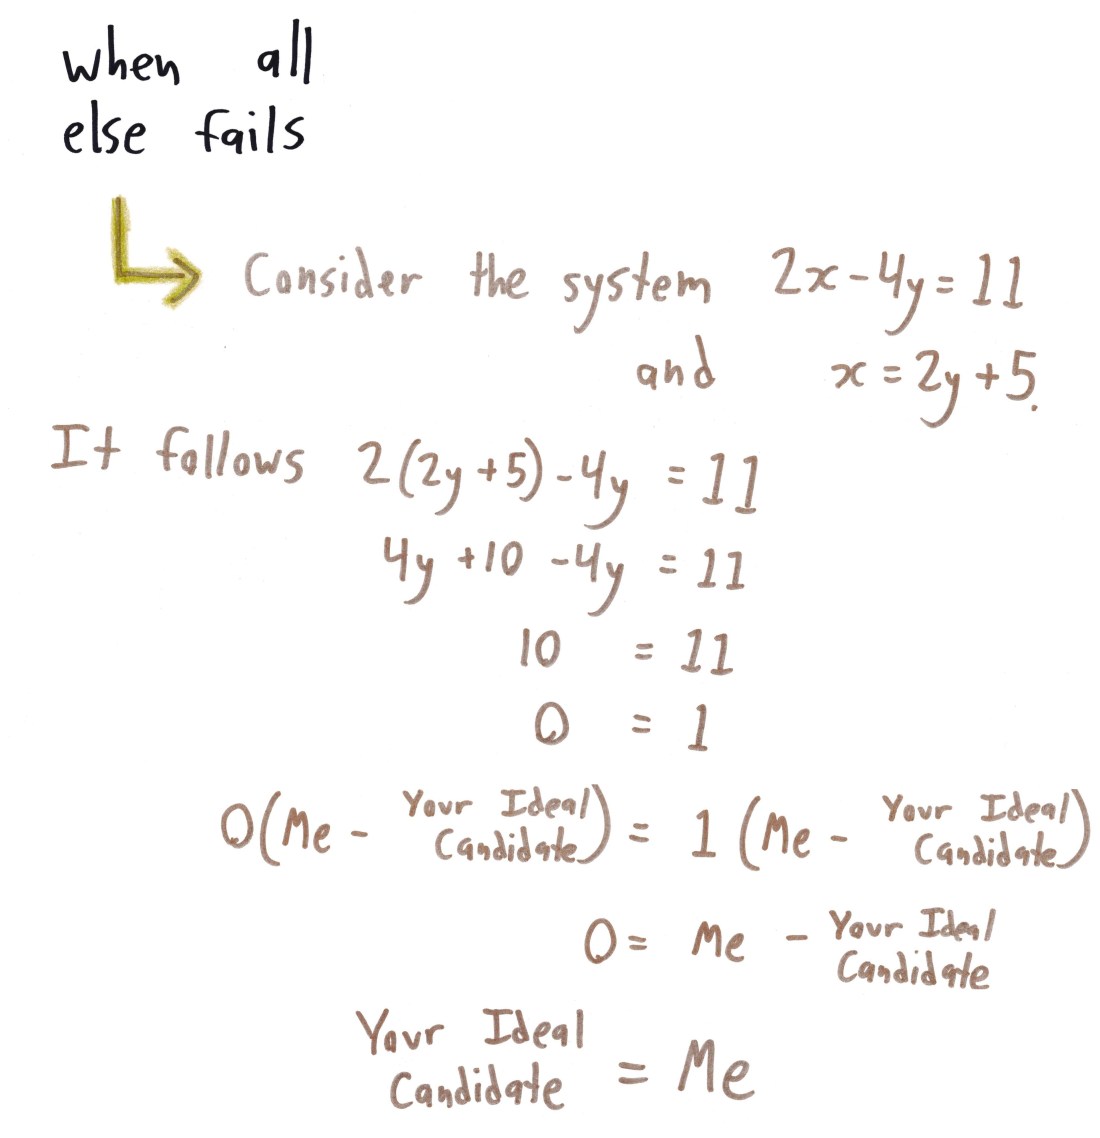 when all
else fails
Consider the system 2x-4y=11
and x=2y+5.
It follows 2(2y+5)-4y =11
4y +10 -4y =11
10 = 11
0 = 1
0(Me - Your Ideal Candidate) = 1(Me - Your Ideal Candidate)
0= Me - Your Ideal Candidate
Your Ideal Candidate = Me